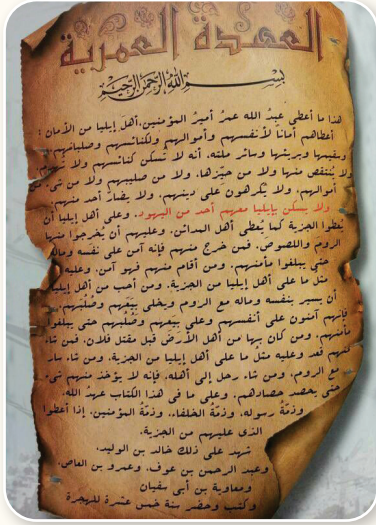 العهدة العمرية
بسم الله الرحمن الرحيم
هذا ما أعطى عبدُ الله عمرُ أميرُ المؤمنين، أهلَ إيليا من الأمان :
أعطاهم أماناً لأنفسهم وأموالهم ولكنائسهم وصلبانهم
وسقيمها وبريئها وسائر ملته، أنه لا تُسكن كنائسهم ولا تُهدم،
ولا يُنتقص منها ولا من حيّزها، ولا من صليبهم ولا من شئ من
أموالهم، ولا يُكرهون على دينهم، ولا يضارّ أحد منهم،
ولا يسكن بإيليا معهم أحد من اليهود. وعلى أهل إيليا أن
يعطوا الجزية كما يُعطى أهل المدائن. وعليهم أن يُخرجوا منها
الروم واللصوص. فمن خرج منهم فإنه آمن على نفسه وماله
حتى يبلغوا مأمنهم. ومن أقام منهم فهو آمن، وعليه
مثل ما على أهل إيليا من الجزية. ومن أحب من أهل إيليا
أن يسير بنفسه وماله مع الروم ويخلى بِيَعهم وصُلُبهم،
فإنهم آمنون على أنفسهم وعلى بِيَعهم وصُلُبهم حتى يبلغوا
مأمنهم. ومن كان بها من أهل الأرض قبل مقتل فلان، فمن شاء
منهم قعد وعليه مثل ما على أهل إيليا من الجزية، ومن شاء سار
مع الروم، ومن شاء رجل إلى أهله، فإنه لا يؤخذ منهم شئ
حتى يحصد حصادهم. وعلى ما فى هذا الكتاب عهدُ الله،
وذمّة رسوله، وذمّة الخلفاء، وذمّة المؤمنين، إذا أعطوا
الذى عليهم من الجزية.
شهد على ذلك خالد بن الوليد،
وعبد الرحمن بن عوف، وعمرو بن العاص،
ومعاوية بن أبى سفيان
وكتب وحضر سنة خمس عشرة للهجرة